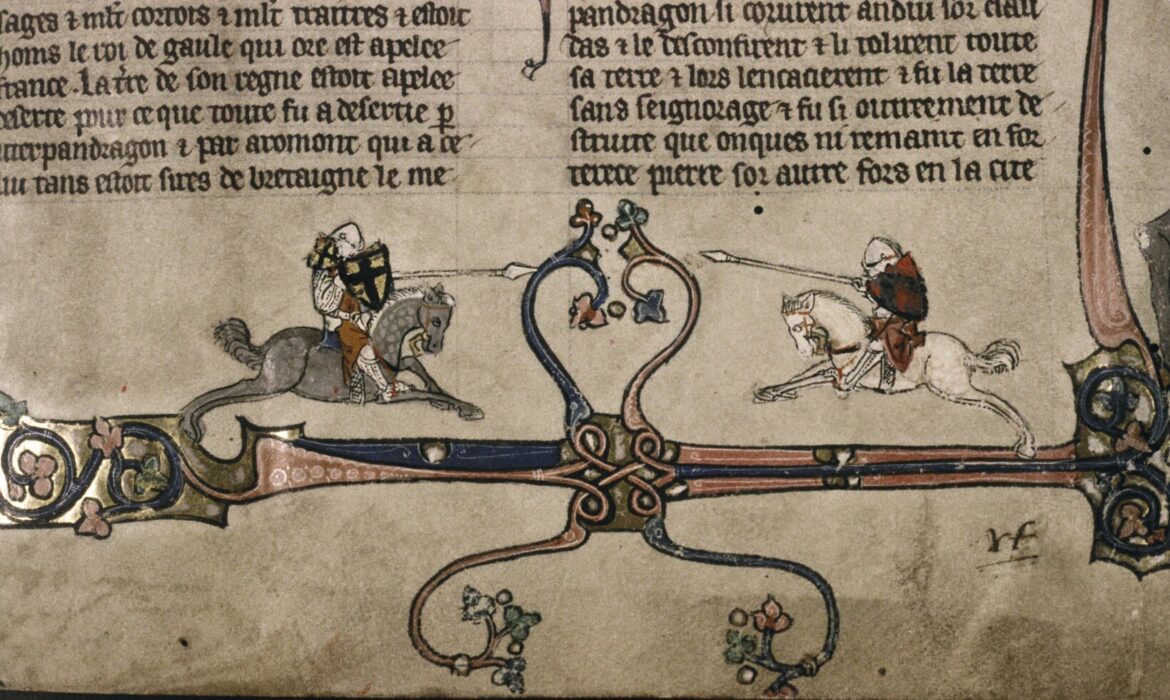 sages ⁊ ml̃t cortois ⁊ ml̃t traitres ⁊ estoit
homs le roi de gaule qui ore est apelee
france. La tr̃e de son regne estoit apelee
deserte pour ce que toute fu adesertie ꝑ
uterpandragon ⁊ par aromont qui a ce
lui tans estoit sires de bretaigne le me
pandragon si coururent andui sor clau
das ⁊ le desconfirent ⁊ li tolirent toute
sa terre ⁊ lors lencacierent ⁊ fu la terre
sans seignorage ⁊ fu si outreement de
struite que onques ni remaint en for
terece pierre sor autre fors en la cite